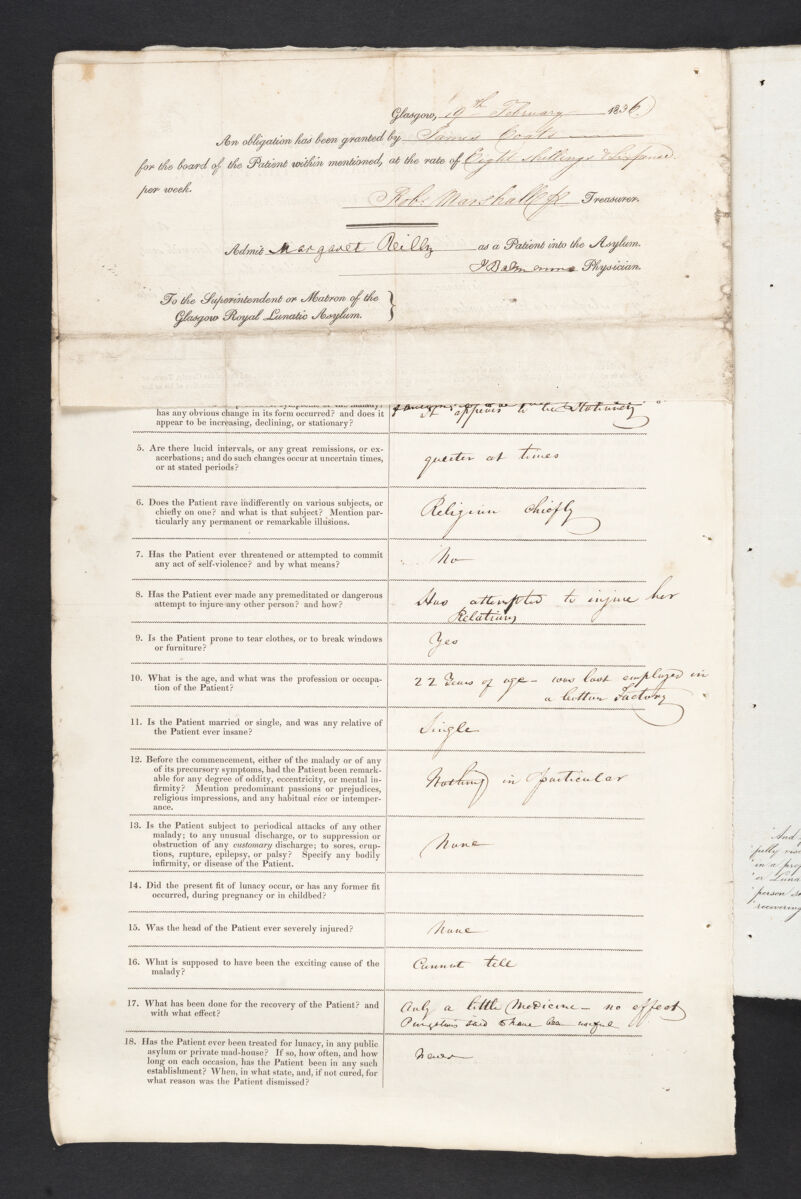 Glasgow, 19th February 1836
An obligation has been granted by James
for the board of the Patient within mentioned, at the rate of Eight Shillings & Sixpence
per week.
Robt Marshall Treasurer.
Admit Margaret Reilly as a Patient into the Asylum.
Physician.
To the Superintendent or Matron of the
Glasgow Royal Lunatic Asylum.
has any obvious change in its form occurred? and does it
appear to be increasing, declining, or stationary?
it appears to be Stationary
5. Are there lucid intervals, or any great remissions, or ex-
acerbations; and do such changes occur at uncertain times,
or at stated periods?
quieter at times
6. Does the Patient rave indifferently on various subjects, or
chiefly on one? and what is that subject? Mention par-
ticularly any permanent or remarkable illusions.
Religion Chiefly
7. Has the Patient ever threatened or attempted to commit
any act of self-violence? and by what means?
No
8. Has the Patient ever made any premeditated or dangerous
attempt to injure any other person? and how?
Has attempted to injure her
Relations
9. Is the Patient prone to tear clothes, or to break windows
or furniture?
Yes
10. What is the age, and what was the profession or occupa-
tion of the Patient?
22 Years of age – was last employed in
a button Factory
11. Is the Patient married or single, and was any relative of
the Patient ever insane?
Single
12. Before the commencement, either of the malady or of any
of its precursory symptoms, had the Patient been remark-
able for any degree of oddity, eccentricity, or mental in-
firmity? Mention predominant passions or prejudices,
religious impressions, and any habitual vice or intemper-
ance.
Nothing in particular
13. Is the Patient subject to periodical attacks of any other
malady; to any unusual discharge, or to suppression or
obstruction of any customary discharge; to sores, erup-
tions, rupture, epilepsy, or palsy? Specify any bodily
infirmity, or disease of the Patient.
None
14. Did the present fit of lunacy occur, or has any former fit
occurred, during pregnancy or in childbed?
15. Was the head of the Patient ever severely injured?
None
16. What is supposed to have been the exciting cause of the
malady?
Cannot tell
17. What has been done for the recovery of the Patient? and
with what effect?
Only a little Medicine – no effect
Purgatives said to have been useful
18. Has the Patient ever been treated for lunacy, in any public
asylum or private mad-house? If so, how often, and how
long on each occasion, has the Patient been in any such
establishment? When, in what state, and, if not cured, for
what reason was the Patient dismissed?
Never
'And
'fully
'in a
'or Luna
'person
'recovering